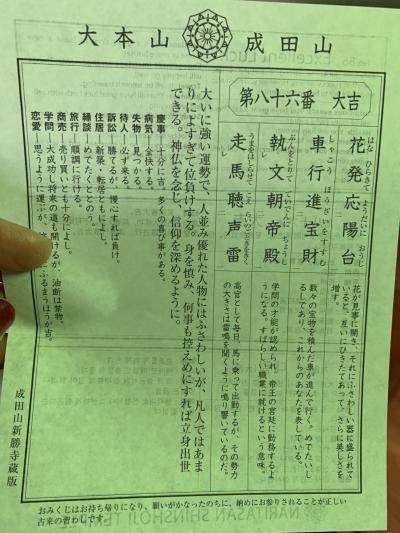 大本山 成田山
第八十六番 大吉
花発応陽台
はな ひらきて ようだいに おうじ
車行進宝財
しゃこう ほうざいをすすむ
執文朝帝殿
ぶんをとりて ていでんに ちょうし
走馬聴声雷
うまをはしらせて こえ らいのごときをきく
花が見事に開き、それにふさわしい器に盛られて
いると、互いにひきたてあって、さらに美しさを
増す。
数々の宝物を積んだ車が進んで行く。めでたいし
るしであり、これからのあなたを表している。
学問の才能が認められ、帝王の宮廷に勤務するよ
うになる。すばらしい職業に就けるという意味。
高官として毎日、馬に乗って出勤するが、その勢力
の大きさは雷鳴を聞くように鳴り響いているのだ。
大いに強い運勢で、人並み優れた人物にはふさわしいが、凡人ではあま
りによすぎて位負けする。身を慎み、何事も控えめにすれば立身出世
できる。神仏を念じ、信仰を深めるように。
慶事―十分に吉。多くの喜び事がある。
病気―全快する。
失物―見つかる。
待人―必ず来る。
訴訟―勝てるが、慢心すれば負け。
住居―新築・転居ともによし。
縁談―めでたくととのう。
旅行―順調に行ける。
商売―売り買いとも十分によし。
学問―大成功し将来の道も開けるが、油断は禁物。
恋愛―思うように運ぶが、ふるまうほうが吉。
成田山新勝寺蔵版
おみくじはお持ち帰りになり、願いがかなったのちに、納めにお参りされることが正しい
古来の習わしです。